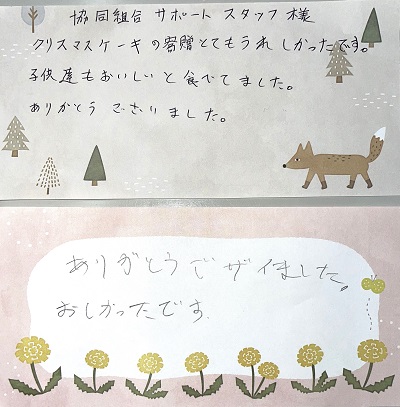 協同組合 サポート スタッフ 様
クリスマスケーキの寄贈とてもうれしかったです。
子供達もおいしいと食べてました。
ありがとう ございました。
ありがとうごザイました。
おしかったです.